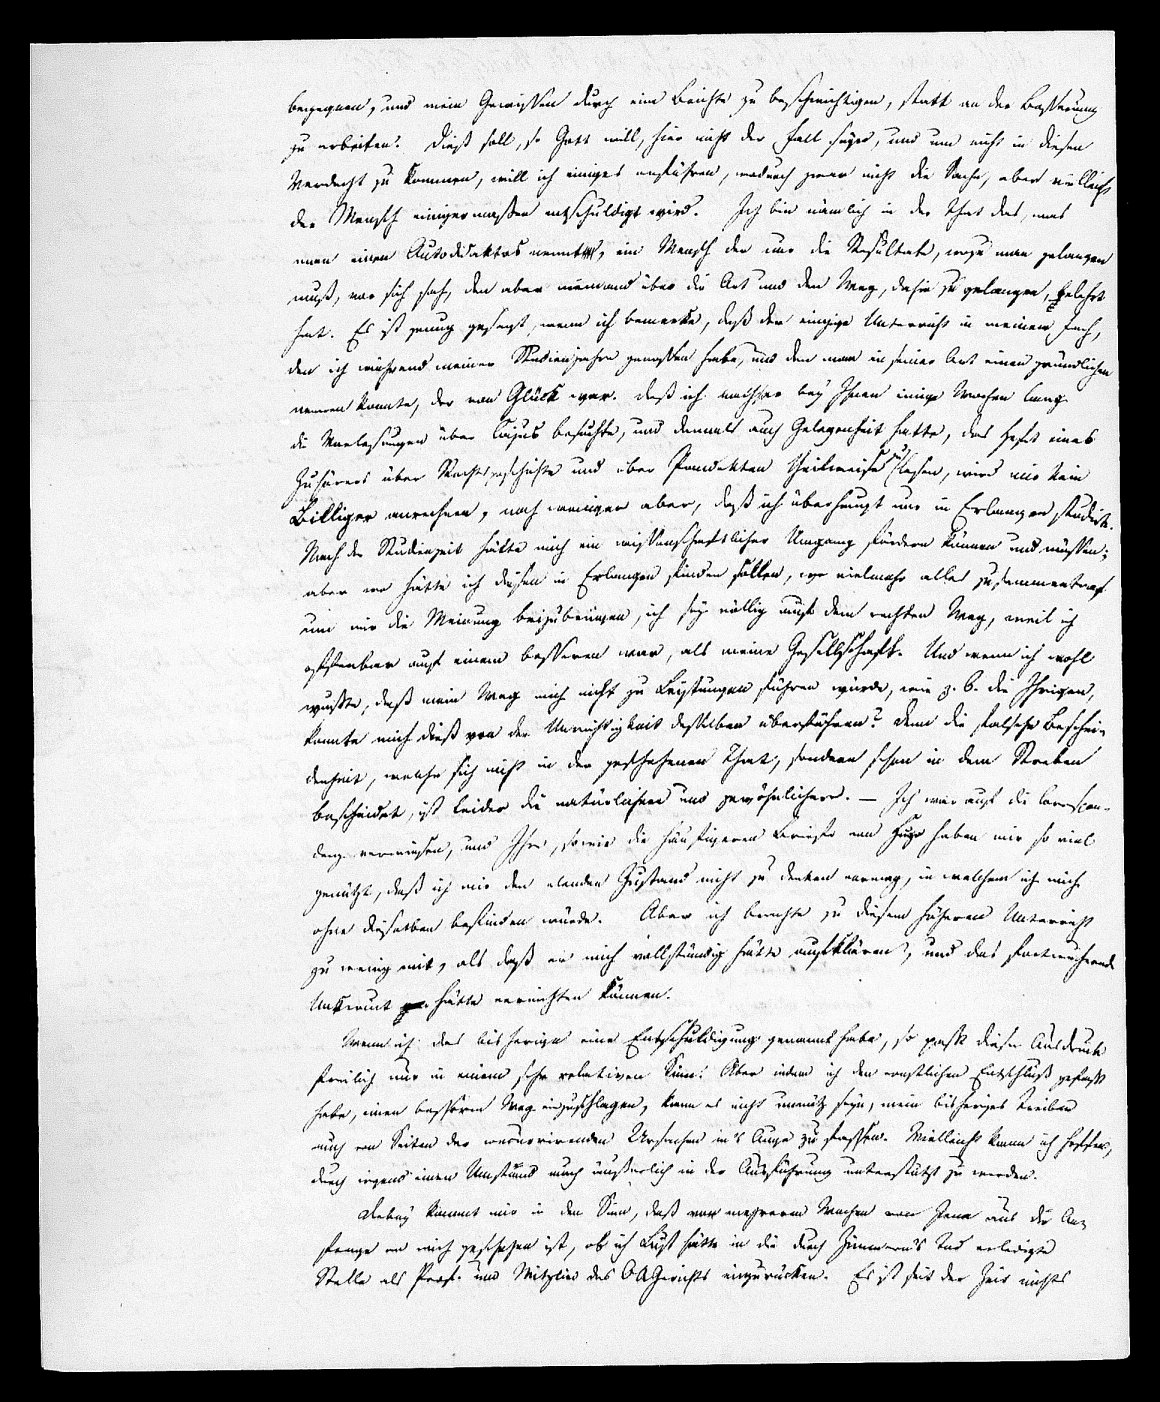 begegnen, und mein Gewissen durch eine Beichte zu beschwichtigen, statt an der Besserung
zu arbeiten. Dieß soll, so Gott will, hier nicht der Fall seyn, und um nicht in diesen
Verdacht zu kommen, will ich einiges anführen, wodurch zwar nicht die Sache, aber vielleicht
der Mensch einigermaßen entschuldigt wird. Ich bin nämlich in der That das, was
man einen Autodidaktos nennt, ein Mensch der nur die Resultate, wozu man gelangen
muß, vor sich sah, den aber niemand über die Art und den Weg, dahin zu gelangen, gelehrt
hat. Es ist genug gesagt, wenn ich bemerke, daß der einzige Unterricht in meinem Fach,
den ich während meiner Studienjahre genossen habe, und den man in seiner Art einen gründlichen
nennen konnte, der von Glück war. Daß ich nachher bey Ihnen einige Wochen lang
die Vorlesungen über Gajus besuchte, und damals auch Gelegenheit hatte, das Heft eines
Zuhörers über Rechtsgeschichte und über Pandekten theilweise zu lesen, wird mir kein
Billiger anrechnen, noch weniger aber, daß ich überhaupt nur in Erlangen studirte.
Nach der Studienzeit hätte mich ein wissenschaftlicher Umgang fördern können und müssen;
aber wo hätte ich diesen in Erlangen finden sollen, wo vielmehr alles zusammentraf
um mir die Meinung beizubringen, ich sey völlig auf dem rechten Weg, weil ich
offenbar auf einem besseren war, als meine Gesellschaft. Und wenn ich wohl
wußte, daß mein Weg mich nicht zu Leistungen führen würde, wie z. B. die Ihrigen,
konnte mich dieß von der Unrichtigkeit desselben überführen? denn die falsche Beschei-
denheit, welche sich nicht in der geschehenen That, sondern schon in dem Streben
bescheidet, ist leider die natürlichere und gewöhnlichere. — Ich war auf die Correspon-
denz verwiesen, und Ihre, sowie die häufigeren Briefe von Hugo haben mir so viel
genützt, daß ich mir den elenden Zustand nicht zu denken vermag, in welchem ich mich
ohne dieselben befinden würde. Aber ich brachte zu diesem höheren Unterricht
zu wenig mit, als daß er mich vollständig hätte aufklären, und das fortwuchernde
Unkraut hätte vernichten können.
Wenn ich das bisherige eine Entschuldigung genannt habe, so paßt dieser Ausdruck
freilich nur in einem sehr relativen Sinn. Aber indem ich den ernstlichen Entschluß gefaßt
habe, einen besseren Weg einzuschlagen, kann es nicht unnütz seyn, mein bisheriges Treiben
auch von Seiten der Ursachen in's Auge zu fassen. Vielleicht kann ich hoffen,
durch irgend einen Umstand auch äußerlich in der Ausführung unterstützt zu werden.
Dabey kommt mir in den Sinn, daß vor mehreren Wochen von Jena aus die An-
frage an mich geschehen ist, ob ich Lust hätte in die durch Zimmern's Tod erledigte
Stelle als Prof. und Mitglied des OAGerichts einzurücken. Es ist seit der Zeit nichts